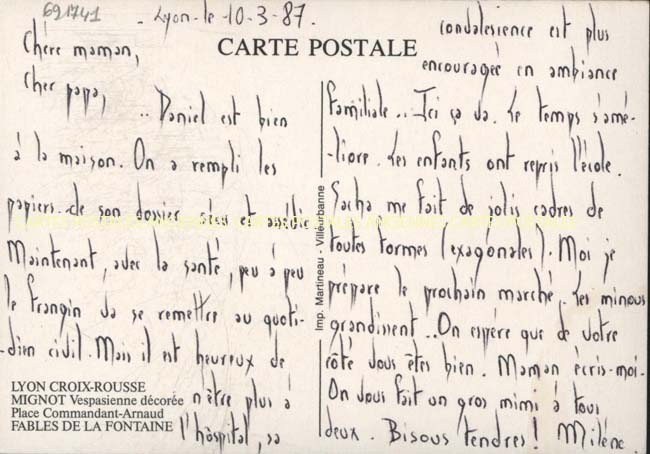 691741
Lyon le 10-3-87.
CARTE POSTALE
Chère maman,
Cher papa,
.. Daniel est bien
à la maison. On a rempli les
papiers de son dossier et
Maintenant, avec la santé, peu à peu
le frangin va se remettre au quoti-
dien civil. Mais il est heureux de
n'être plus à
l'hôpital, sa
condalesience est plus
encouragée en ambiance
familiale.. Ici ça va. Le temps s'amé-
liore. Les enfants ont repris l'école.
Sacha me fait de jolis cadres de
toutes formes (exagonales). Moi je
prépare le prochain marché. Les minous
grandissent.. On espère que de votre
côté vous êtes bien. Maman écris-moi.
On vous fait un gros mimi à tous
deux. Bisous tendres! Milène
Imp. Martineau - Villeurbanne
LYON CROIX-ROUSSE
MIGNOT Vespasienne décorée
Place Commandant-Arnaud
FABLES DE LA FONTAINE